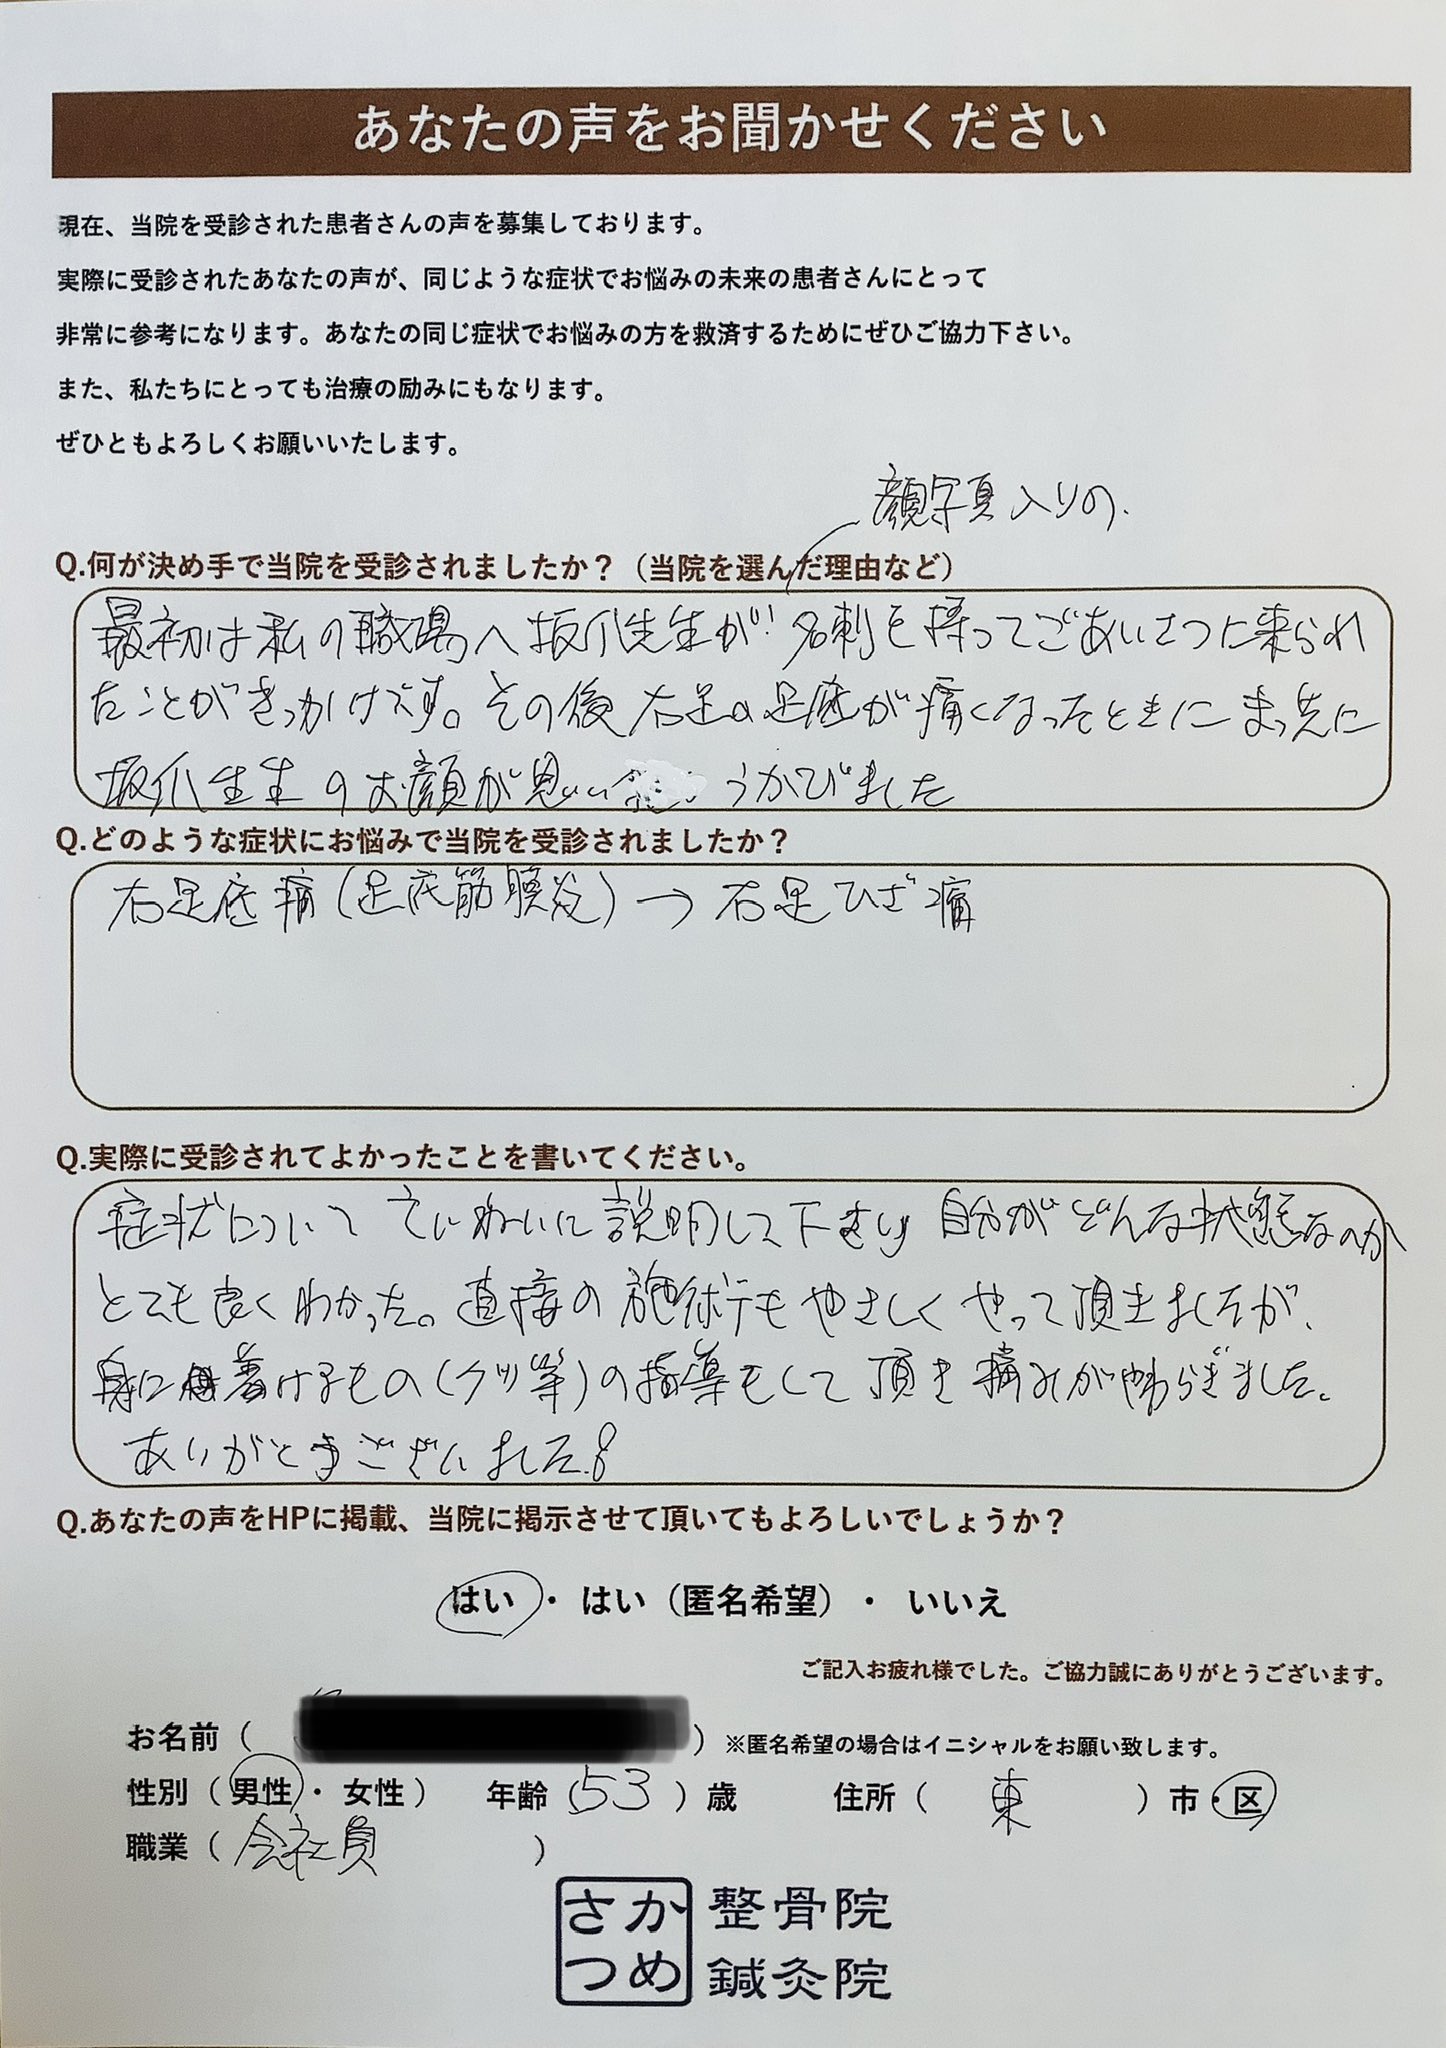 あなたの声をお聞かせください
現在、当院を受診された患者さんの声を募集しております。
実際に受診されたあなたの声が、同じような症状でお悩みの未来の患者さんにとって
非常に参考になります。あなたの同じ症状でお悩みの方を救済するためにぜひご協力下さい。
また、私たちにとっても治療の励みにもなります。
ぜひともよろしくお願いいたします。
顔写真入りの
Q.何が決め手で当院を受診されましたか？（当院を選んだ理由など）
最初は私の職場へ坂爪先生が名刺を持ってごあいさつに来られ
たことがきっかけです。その後右足の足底が痛くなったときにまっ先に
坂爪先生のお顔が思い うかびました
Q.どのような症状にお悩みで当院を受診されましたか？
右足底痛（足底筋膜炎）→右足ひざ痛
Q.実際に受診されてよかったことを書いてください。
症状についてていねいに説明して下さり自分がどんな状態なのか
とても良くわかった。直接の施術でもやさしくやって頂きましたが、
身に着けるもの（クツ等）の指導もして頂き痛みがやわらぎました。
ありがとうございました！
Q.あなたの声をHPに掲載、当院に掲示させて頂いてもよろしいでしょうか？
はい・はい（匿名希望）・いいえ
ご記入お疲れ様でした。ご協力誠にありがとうございます。
お名前（ ）※匿名希望の場合はイニシャルをお願い致します。
性別（男性・女性） 年齢（53）歳 住所（東）市・区
職業（会社員）
さか 整骨院
つめ 鍼灸院